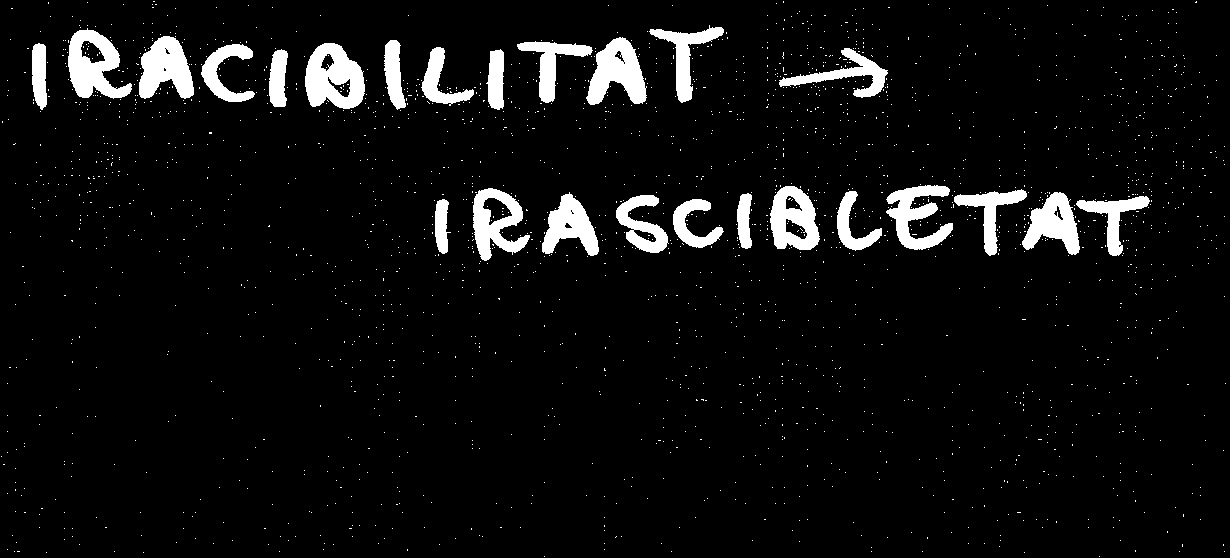 IRACIBILITAT →
IRASCIBLETAT